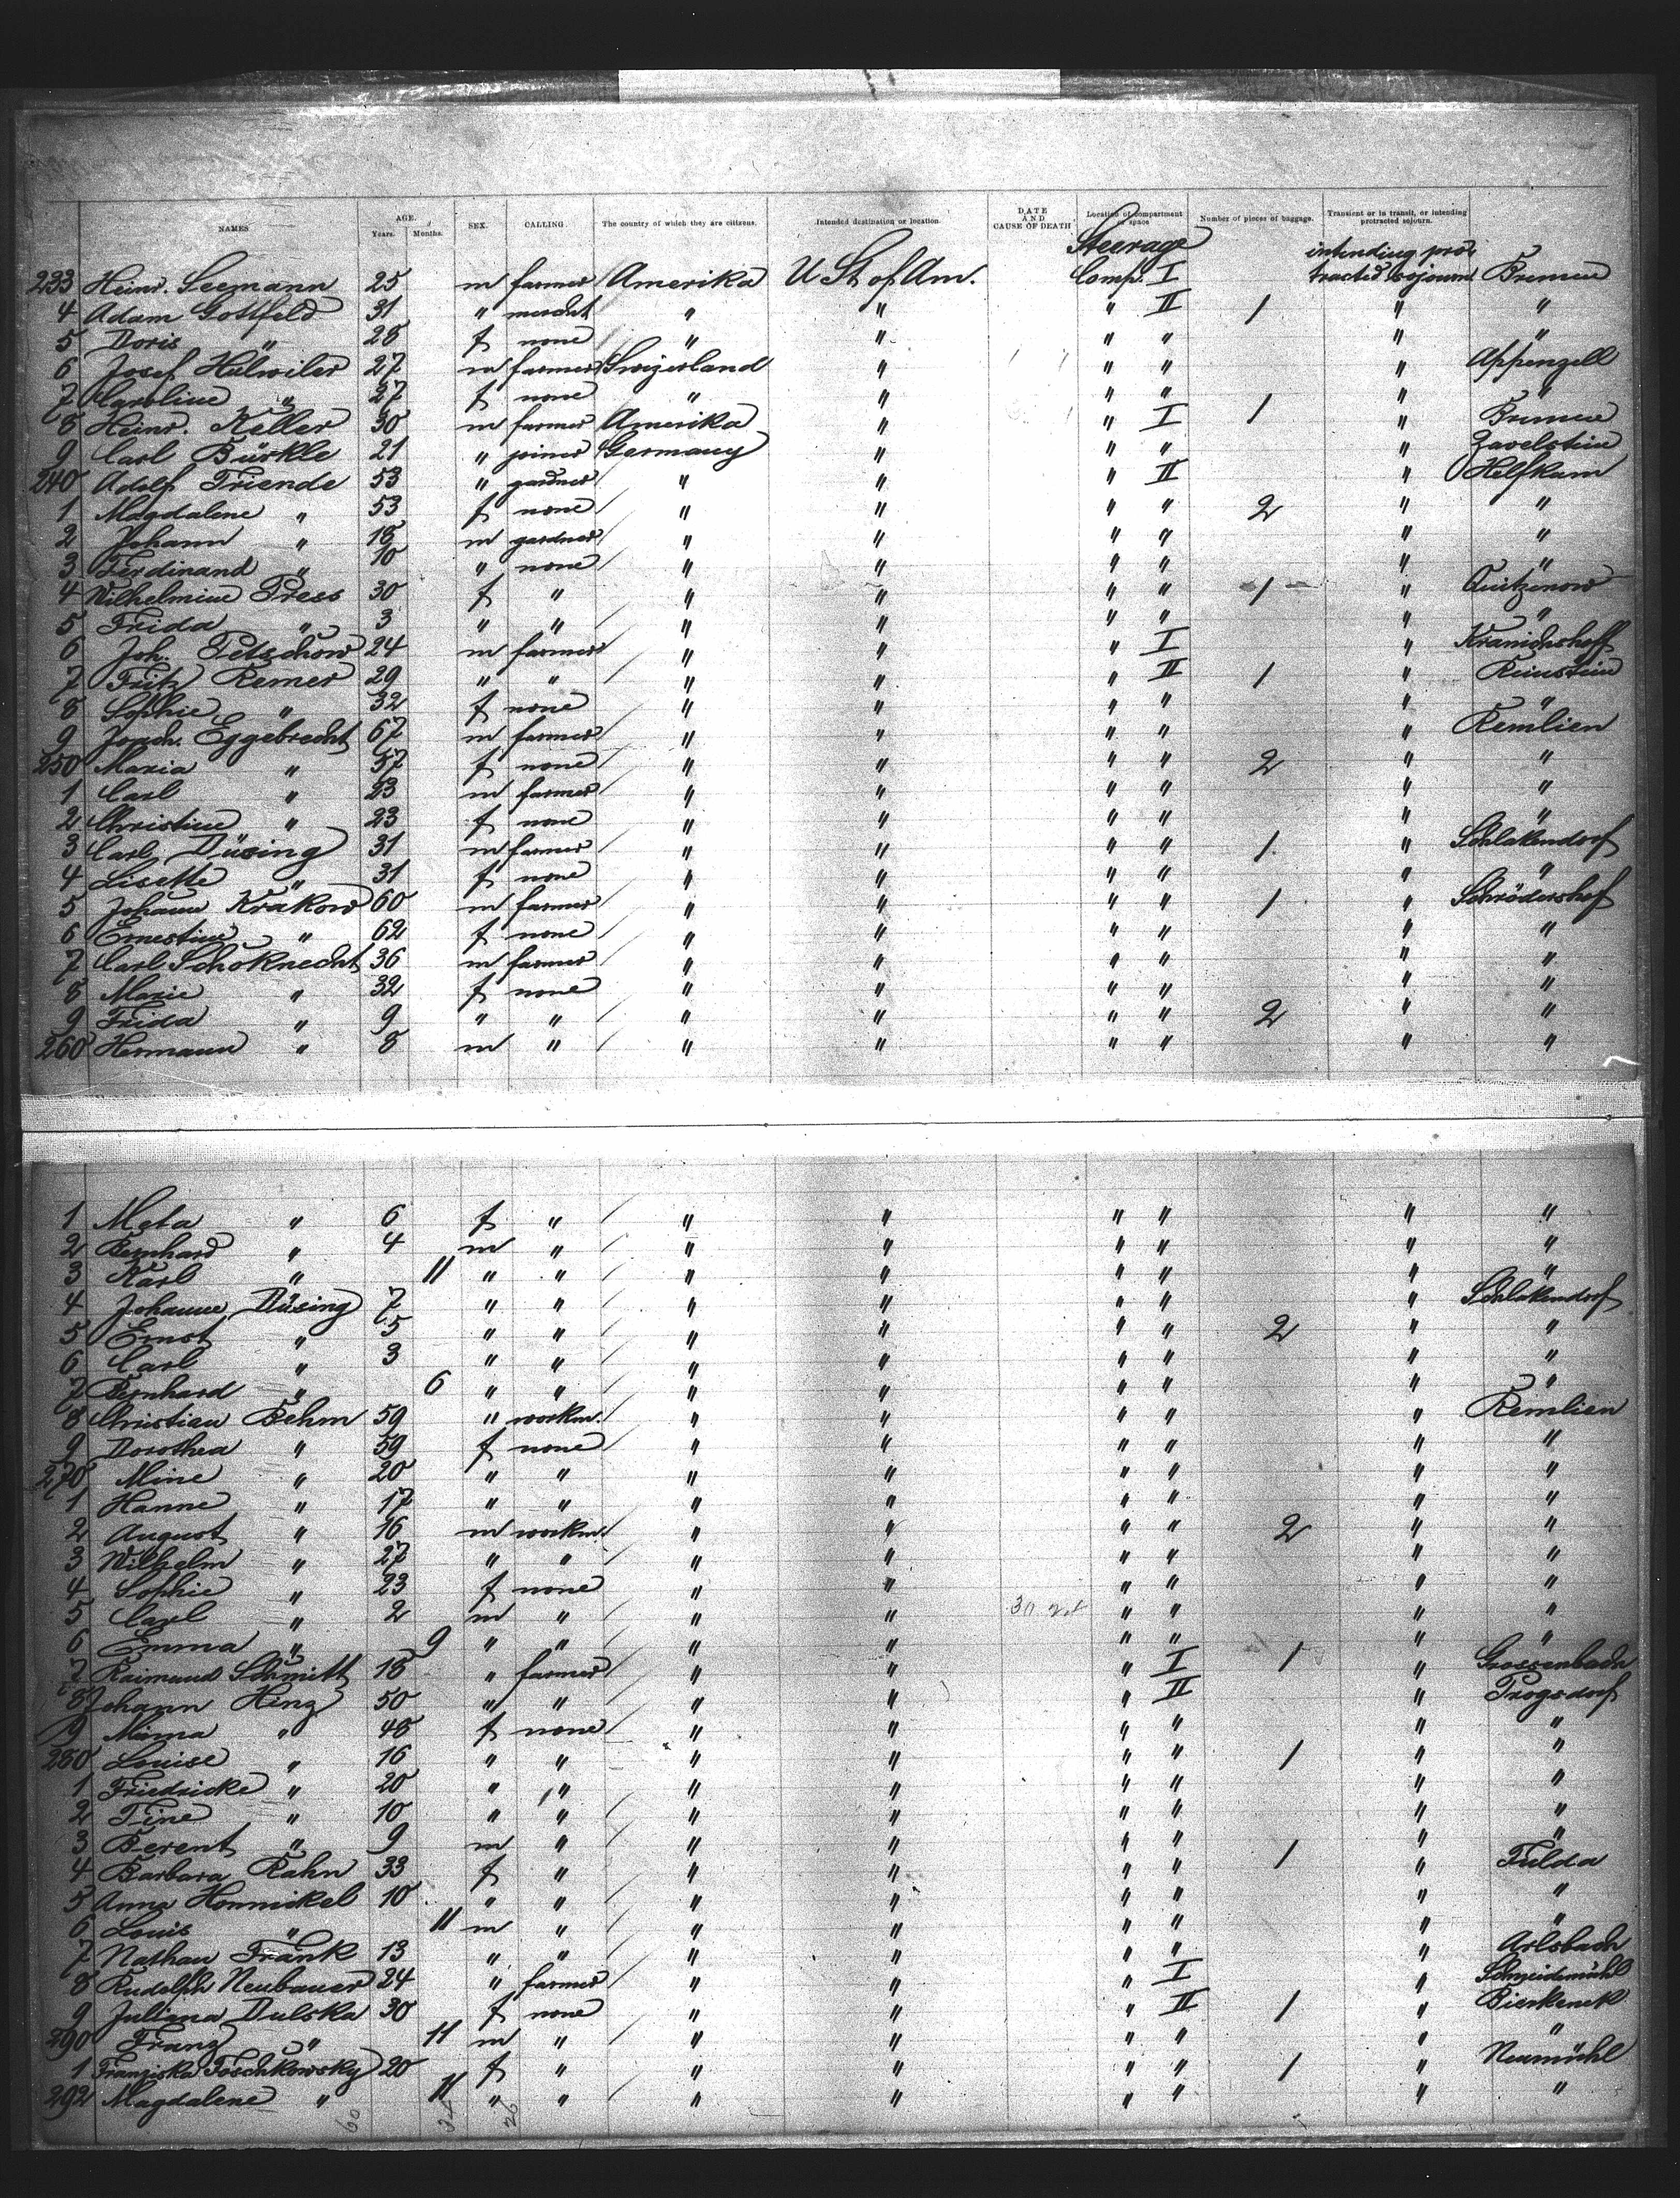 NAMES AGE. Years. Months. SEX. CALLING The country of which they are citizens. Intended destination or location. DATE AND CAUSE OF DEATH Location of compartment or space Number of pieces of baggage. Transient or in transit, or intending protracted sojourn.
Steerage intending pro-
233 Heinr. Seemann 25 m farmer Amerika U St of Am. Comp. I tracted sojourn Bremen
4 Adam Gottfeld 31 " mercht " " " II 1 " "
5 Doris " 28 f none " " " " " "
6 Josef Hulwiler 27 m farmer Swizerland " " " " Appenzell
7 Caroline " 27 f none " " " " " "
8 Heinr. Keller 30 m farmer Amerika " " I 1 " Bremen
9 Carl Bürkle 21 " joiner Germany " " " " Zavelstein
240 Adolf Friende 53 " gardner " " " II " Helfkam
1 Magdalene " 53 f none " " " " 2 " "
2 Johann " 18 m gardner " " " " " "
3 Ferdinand " 10 " none " " " " " "
4 Wilhelmine Press 30 f " " " " " 1 " Quitzenow
5 Frida " 3 " " " " " " " "
6 Joh. Petschow 24 m farmer " " " I " Kranichshoff
7 Fritz Remer 29 " " " " " II 1 " Reinstein
8 Sophie " 32 f none " " " " " "
9 Joach. Eggebrecht 67 m farmer " " " " " Remlien
250 Maria " 57 f none " " " " 2 " "
1 Carl " 23 m farmer " " " " " "
2 Christine " 23 f none " " " " " "
3 Carl Düsing 31 m farmer " " " " 1 " Schlakendorf
4 Lisette " 31 f none " " " " " "
5 Johann Krakow 60 m farmer " " " " 1 " Schrödershof
6 Ernestine " 62 f none " " " " " "
7 Carl Schoknecht 36 m farmer " " " " " "
8 Marie " 32 f none " " " " " "
9 Frida " 9 " " " " " " 2 " "
260 Hermann " 8 m " " " " " " "
1 Meta " 6 f " " " " " " "
2 Bernhard " 4 m " " " " " " "
3 Karl " 11 " " " " " " " "
4 Johann Düsing 7 " " " " " " " Schlakendorf
5 Ernst " 5 " " " " " " 2 " "
6 Carl " 3 " " " " " " " "
7 Bernhard " 6 " " " " " " " "
8 Christian Behm 59 " workm. " " " " " Remlien
9 Dorothea " 59 f none " " " " " "
270 Mine " 20 " " " " " " " "
1 Hanne " 17 " " " " " " " "
2 August " 16 m workm. " " " " 2 " "
3 Wilhelm " 27 " " " " " " " "
4 Sophie " 23 f none " " " " " "
5 Carl " 2 m " " " " " " "
6 Emma " 9 " " " " " " " "
7 Raimund Schmitt 18 " farmer " " " I 1 " Grossenbach
8 Johann Hinz 50 " " " " " II " Progsdorf
9 Mina " 48 f none " " " " " "
280 Louise " 16 " " " " " " 1 " "
1 Friedricke " 20 " " " " " " " "
2 Fine " 10 " " " " " " " "
3 Berent " 9 m " " " " " " "
4 Barbara Rahn 33 f " " " " " 1 " Fulda
5 Anna Honnickel 10 " " " " " " " "
6 Louis " 11 m " " " " " " "
7 Nathan Frank 13 " " " " " " " Arlsbach
8 Rudolph Neubauer 24 " farmer " " " I " Schneidemühl
9 Juliana Dulska 30 f none " " " II 1 " Bierkenek
290 Franz " 11 m " " " " " " "
1 Franziska Toschkowsky 20 f " " " " " 1 " Neumühl
292 Magdalene " 11 " " " " " " " "
60 26